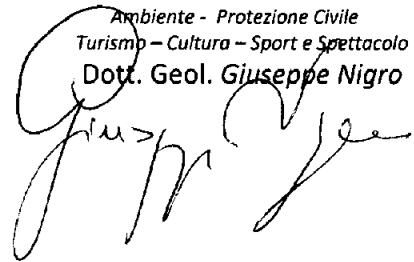 Ambiente - Protezione Civile
Turismo – Cultura – Sport e Spettacolo
Dott. Geol. Giuseppe Nigro